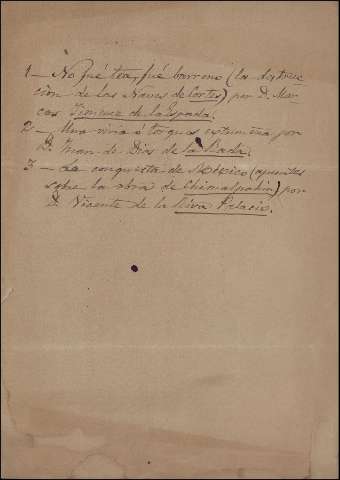 1 — No fué tea, fué barreno (la destruc-
ción de las Naves de Cortes) por D. Mar-
cos Jimenez de la Espada.
2 — Una viria ó torques extremeña por
D. Juan de Dios de la Rada.
3 — La conquista de México (apuntes
sobre la obra de Chimalpahin) por
D. Vicente de la Riva Palacio.